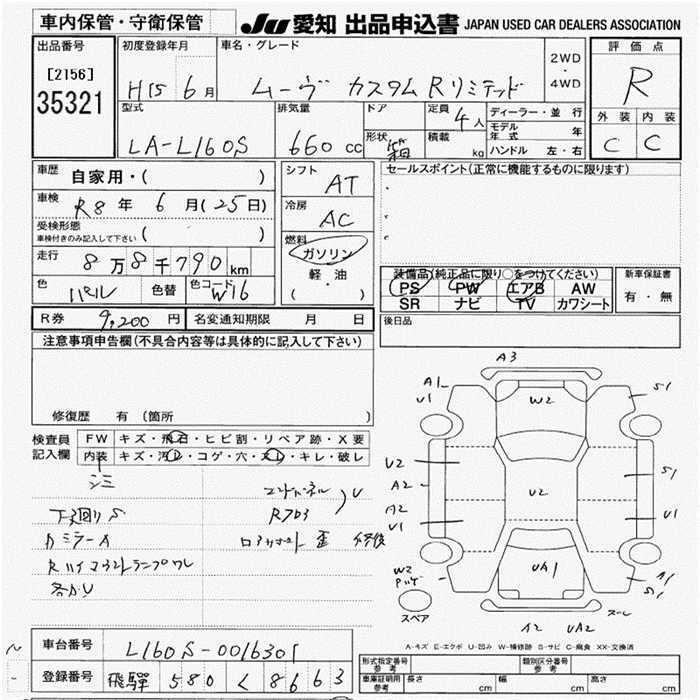 車内保管・守衛保管
JU 愛知 出品申込書 JAPAN USED CAR DEALERS ASSOCIATION
出品番号
[2156]
35321
初度登録年月
H15 6月
車名・グレード
ムーヴ カスタム Rリミテッド
2WD
・
4WD
評価点
R
外装 内装
C C
型式
LA-L160S
排気量
660 cc
ドア
形状 箱
定員 4人
積載 kg
ディーラー・並行
モデル年式 年
ハンドル 左・右
車歴 自家用・( )
車検 R8年 6月(25日)
受検形態
車検付きのみ記入して下さい ( )
走行 8万8千790km
色 パール 色替 色コード W16
シフト AT
冷房 AC
燃料
ガソリン
軽・油
( )
セールスポイント(正常に機能するものに限ります)
装備品(純正品に限り○をつけてください)
PS PW エアB AW
SR ナビ TV カワシート
新車保証書
有・無
R券 9,200円 名変通知期限 月 日
後日品
注意事項申告欄(不具合内容等は具体的に記入して下さい)
修復歴 有(箇所 )
検査員
記入欄
FW キズ・飛石・ヒビ割・リペア跡・X要
内装 キズ・汚レ・コゲ・穴・スレ・キレ・破レ
シミ
下廻りS
カミラーA
各カU
修復
A3
A1
U1
W2
S1
U2
A2
U2
S1
A2
U1
U1
W2
UA1
A1
S1
スペア
A2 UA2
A-キズ E-エクボ U-凹み W-補修跡 S-サビ C-腐食 XX-交換済
車台番号 L160S-0016301
登録番号 飛騨 580 く 8663
形式指定番号 参考
類別区分番号 参考
車庫証明用 参考 長さ cm 幅 cm 高さ cm